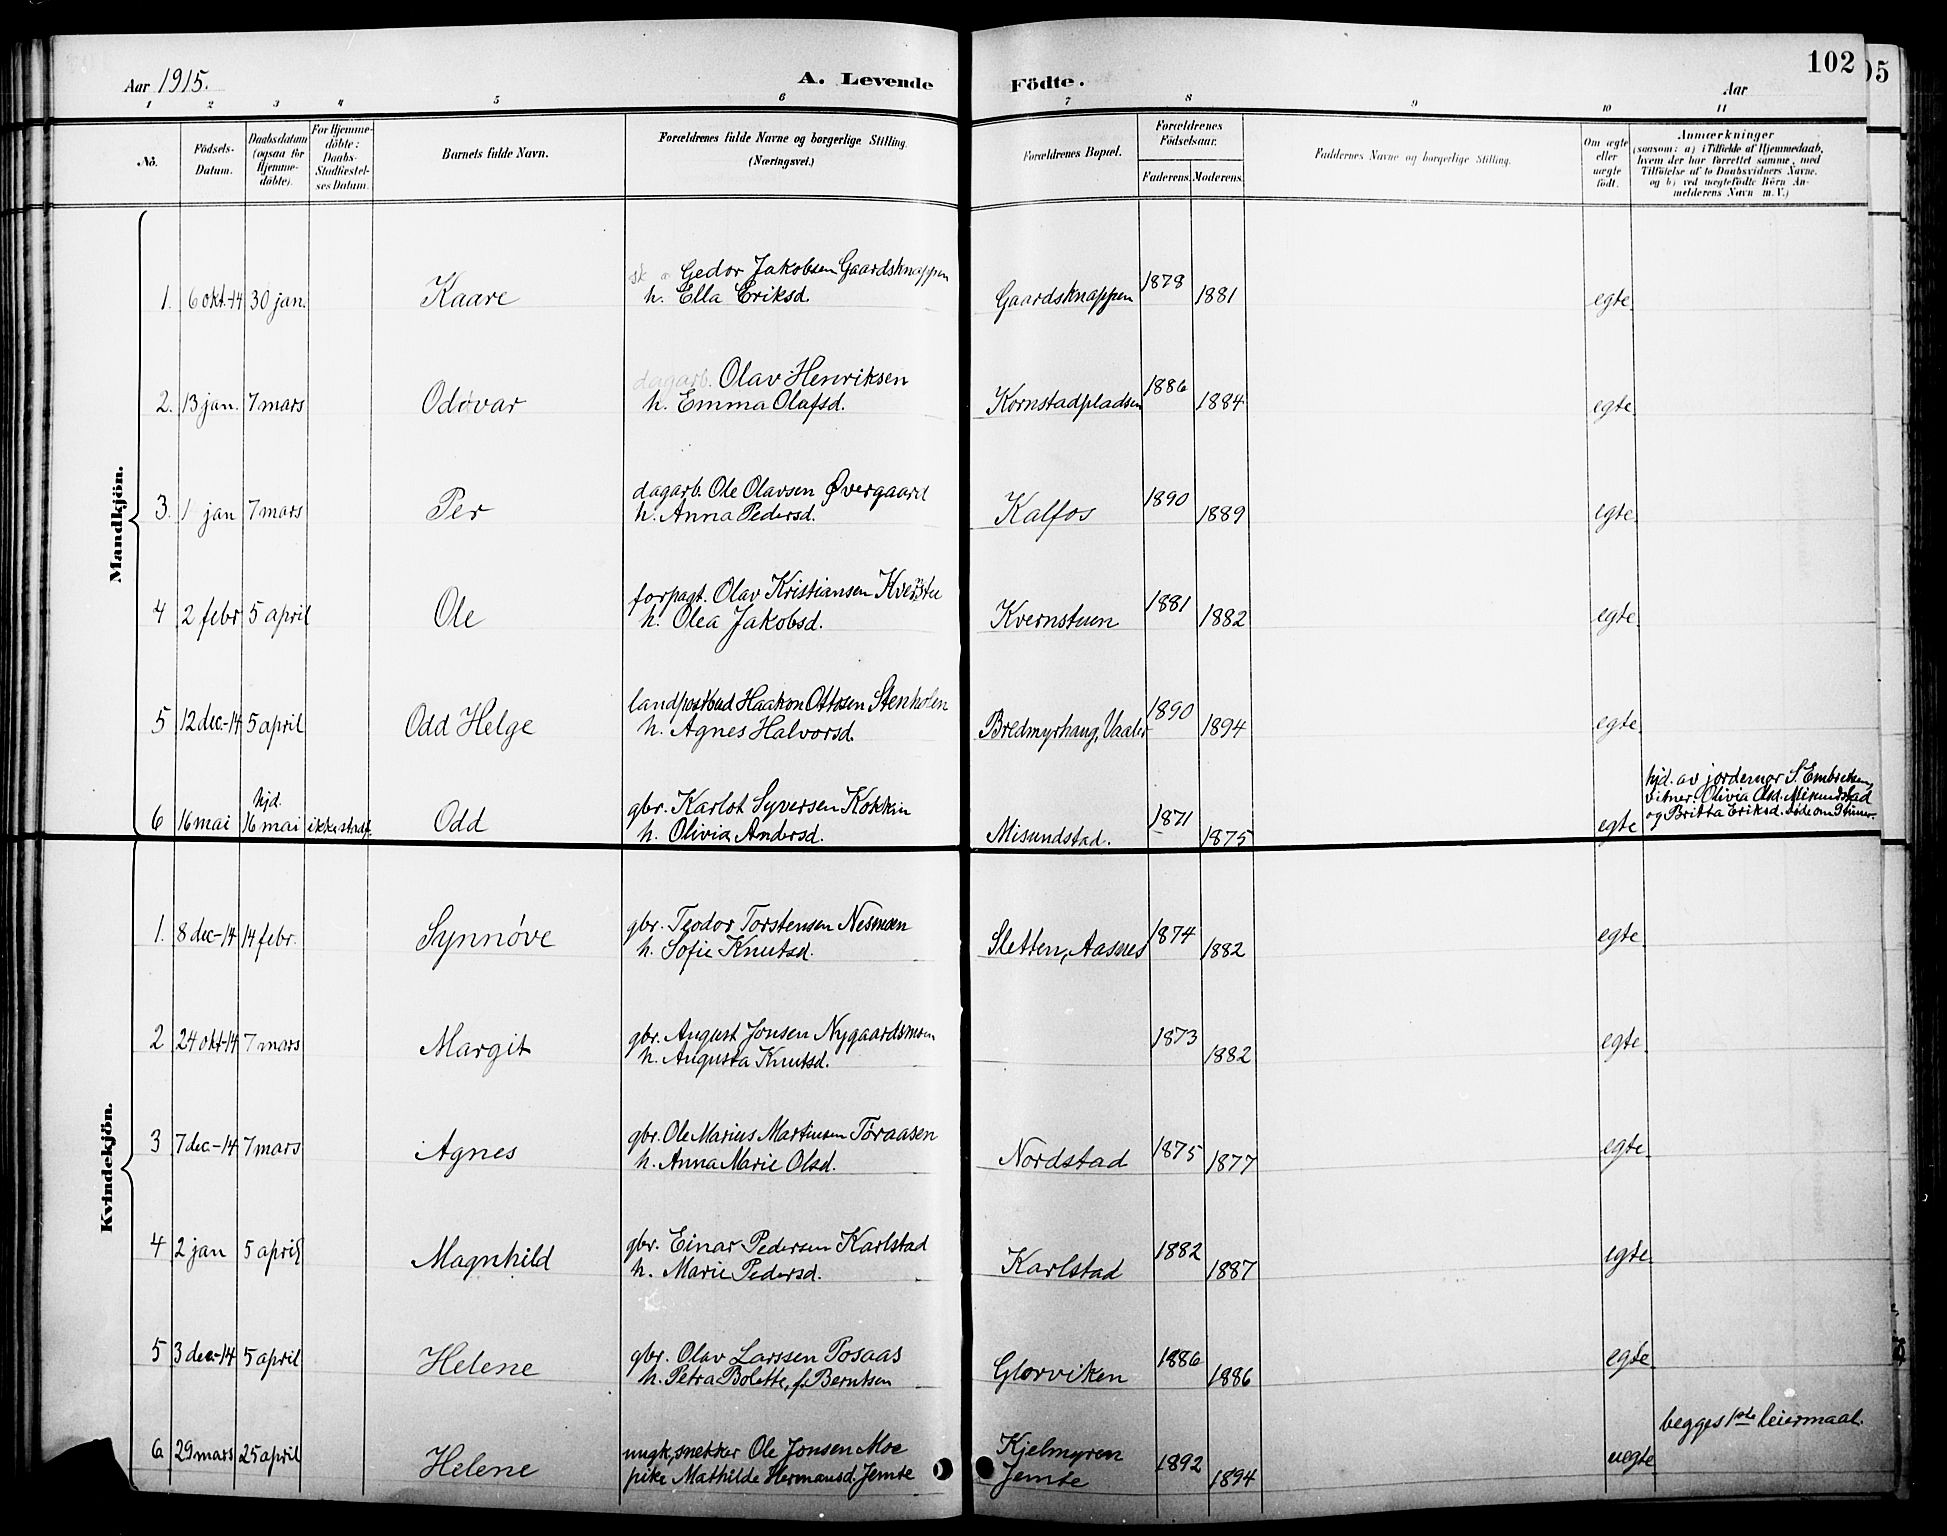 Aar 1915.
A. Levende
Födte.
102
05
Aar
1 2 3 4 5 6 7 8 9 10 11
No.
Födsels-Datum.
Daabsdatum (ogsaa for Hjemme-döbte).
For Hjemme-döbte: Daabs-Stadfæstel-ses Datum.
Barnets fulde Navn.
Forældrenes fulde Navne og borgerlige Stilling. (Næringsvei.)
Forældrenes Bopæl.
Forældrenes Födselsaar.
Faderens. Moderens.
Faddernes Navne og borgerlige Stilling.
Om ægte eller uægte födt.
Anmærkninger
(saasom: a) i Tilfælde af Hjemmedaab,
hvem der har forrettet samme, med
Tilföielse af to Daabsvidners Navne.
og b) ved uægtefödte Börn An-
melderens Navn m. V.)
Mandkjön.
1. 6 okt-14 30 jan. Kaare Gedor Jakobsen Gaardsknappen
h. Ella Eriksd. Gaardsknappen 1878 1881 egte.
2. 13 jan. 7 mars Oddvar dagarb. Olav Henriksen
h. Emma Olafsd. Kornstadpladsen 1886 1884 egte.
3. 1 jan 7 mars Per dagarb. Ole Olavsen Øvergaard
h. Anna Pedersd. Kalfos 1890 1889 egte.
4 2 febr 5 april Ole forpagt. Olav Kristiansen
h. Olea Jakobsd. Kvernstuen 1881 1882 egte.
5 12 dec-14 5 april Odd Helge landpostbud Haakon Ottosen Stenholen
h. Agnes Halvorsd. Bredmyrhaug, Vaaler 1890 1894 egte.
6 16 mai hjd. 16 mai ikke stadf. Odd gbr. Karlot Syversen Kokkin
h. Olivia Andersd. Misundstad. 1871 1875 egte
hjd. av jordemor S. Embretsen,
vitner: Olivia Olsd. Misundstad
og Britta Eriksd. døde om 9 timer.
Kvindekjön.
1. 8 dec-14 14 febr. Synnøve gbr. Teodor Torstensen Nesmoen
h. Sofie Knutsd. Sletten, Aasnes 1874 1882 egte.
2 24 okt-14 7 mars Margit gbr. August Jonsen Nygaardsmoen
h. Augusta Knutsd. 1873 1882 egte.
3 7 dec.-14 7 mars Agnes gbr. Ole Marius Martinsen Tøraasen
h. Anna Marie Olsd. Nordstad 1875 1877 egte.
4 2 jan 5 april Magnhild gbr. Einar Pedersen Karlstad
h. Marie Pedersd. Karlstad 1882 1887 egte.
5 3 dec-14 5 april Helene gbr. Olav Larssen Posaas
h. Petra Bolette, f. Berntsen Glorviken 1886 1886 egte.
6 29 mars 25 april Helene ungk, snekker Ole Jonsen Moe
pike Mathilde Hermansd. Jemte Kjelmyren
Jemte 1892 1894 uegte
begges 1ste leiermaal.